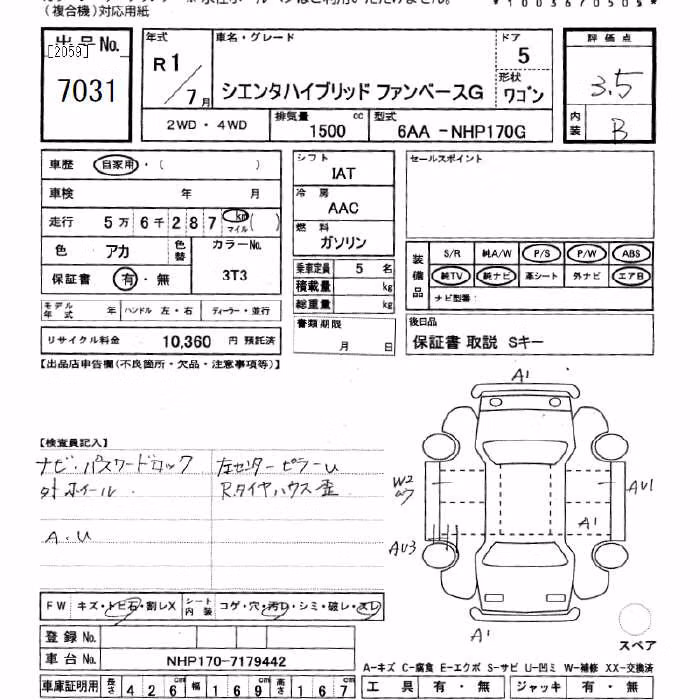 (複合機)対応用紙
出品No.
[2059]
7031
年式
R1/7月
車名・グレード
シエンタハイブリッド ファンベースG
ドア
5
形状
ワゴン
評価点
3.5
内装
B
2WD・4WD
排気量
1500 cc
型式
6AA -NHP170G
車歴
自家用・( )
車検 年 月
走行 5万6千287 km マイル ( )
色 アカ
色替
カラーNo.
3T3
保証書 有・無
モデル年式 年
ハンドル 左・右
ディーラー・並行
リサイクル料金 10,360 円 預託済
シフト
IAT
冷房
AAC
燃料
ガソリン
乗車定員 5 名
積載量 kg
総重量 kg
書類期限
月 日
セールスポイント
装備品
S/R 純A/W P/S P/W ABS
純TV 純ナビ 革シート 外ナビ エアB
ナビ型番:
後日品
保証書 取説 Sキー
【出品店申告欄(不良箇所・欠品・注意事項等)】
【検査員記入】
ナビ・パスワードロック
左センターピラーU
外ホイール
R.タイヤハウス歪
A.U
A1
W2
AU1
A1
AU3
A1
スペア
FW キズ・トビ石・割レX
シート内装 コゲ・穴・汚レ・シミ・破レ・スレ
登録No.
車台No. NHP170-7179442
車庫証明用 長さ 426cm 幅 169cm 高さ 167cm
A-キズ C-腐食 E-エクボ S-サビ U-凹ミ W-補修 XX-交換済
工具 有・無 ジャッキ 有・無